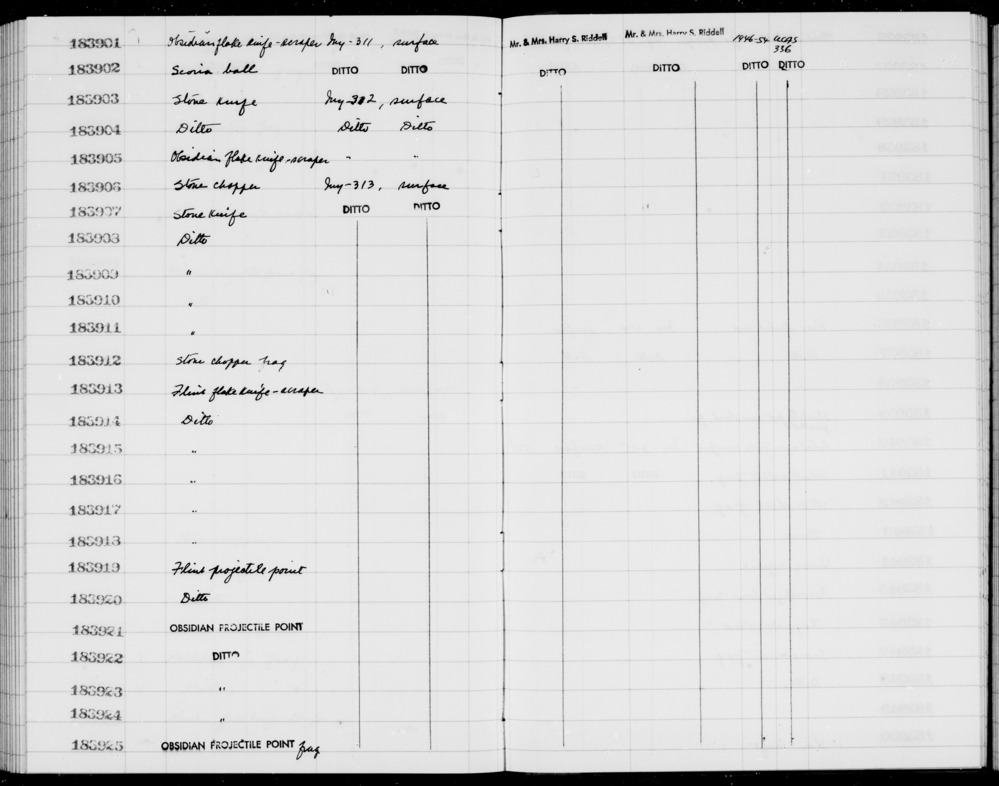 183901 Obsidian flake knife-scraper Iny-311, surface Mr. & Mrs. Harry S. Riddell Mr. & Mrs. Harry S. Riddell 1946-54 UCAS
336
183902 Scoria ball DITTO DITTO DITTO DITTO DITTO DITTO
183903 Stone knife Iny-312, surface
183904 Ditto Ditto Ditto
183905 Obsidian flake knife-scraper " "
183906 Stone chopper Iny-313, surface
183907 Stone knife DITTO DITTO
183908 Ditto
183909 "
183910 "
183911 "
183912 Stone chopper frag
183913 Flint flake knife-scraper
183914 Ditto
183915 "
183916 "
183917 "
183918 "
183919 Flint projectile point
183920 Ditto
183921 OBSIDIAN PROJECTILE POINT
183922 DITTO
183923 "
183924 "
183925 OBSIDIAN PROJECTILE POINT frag